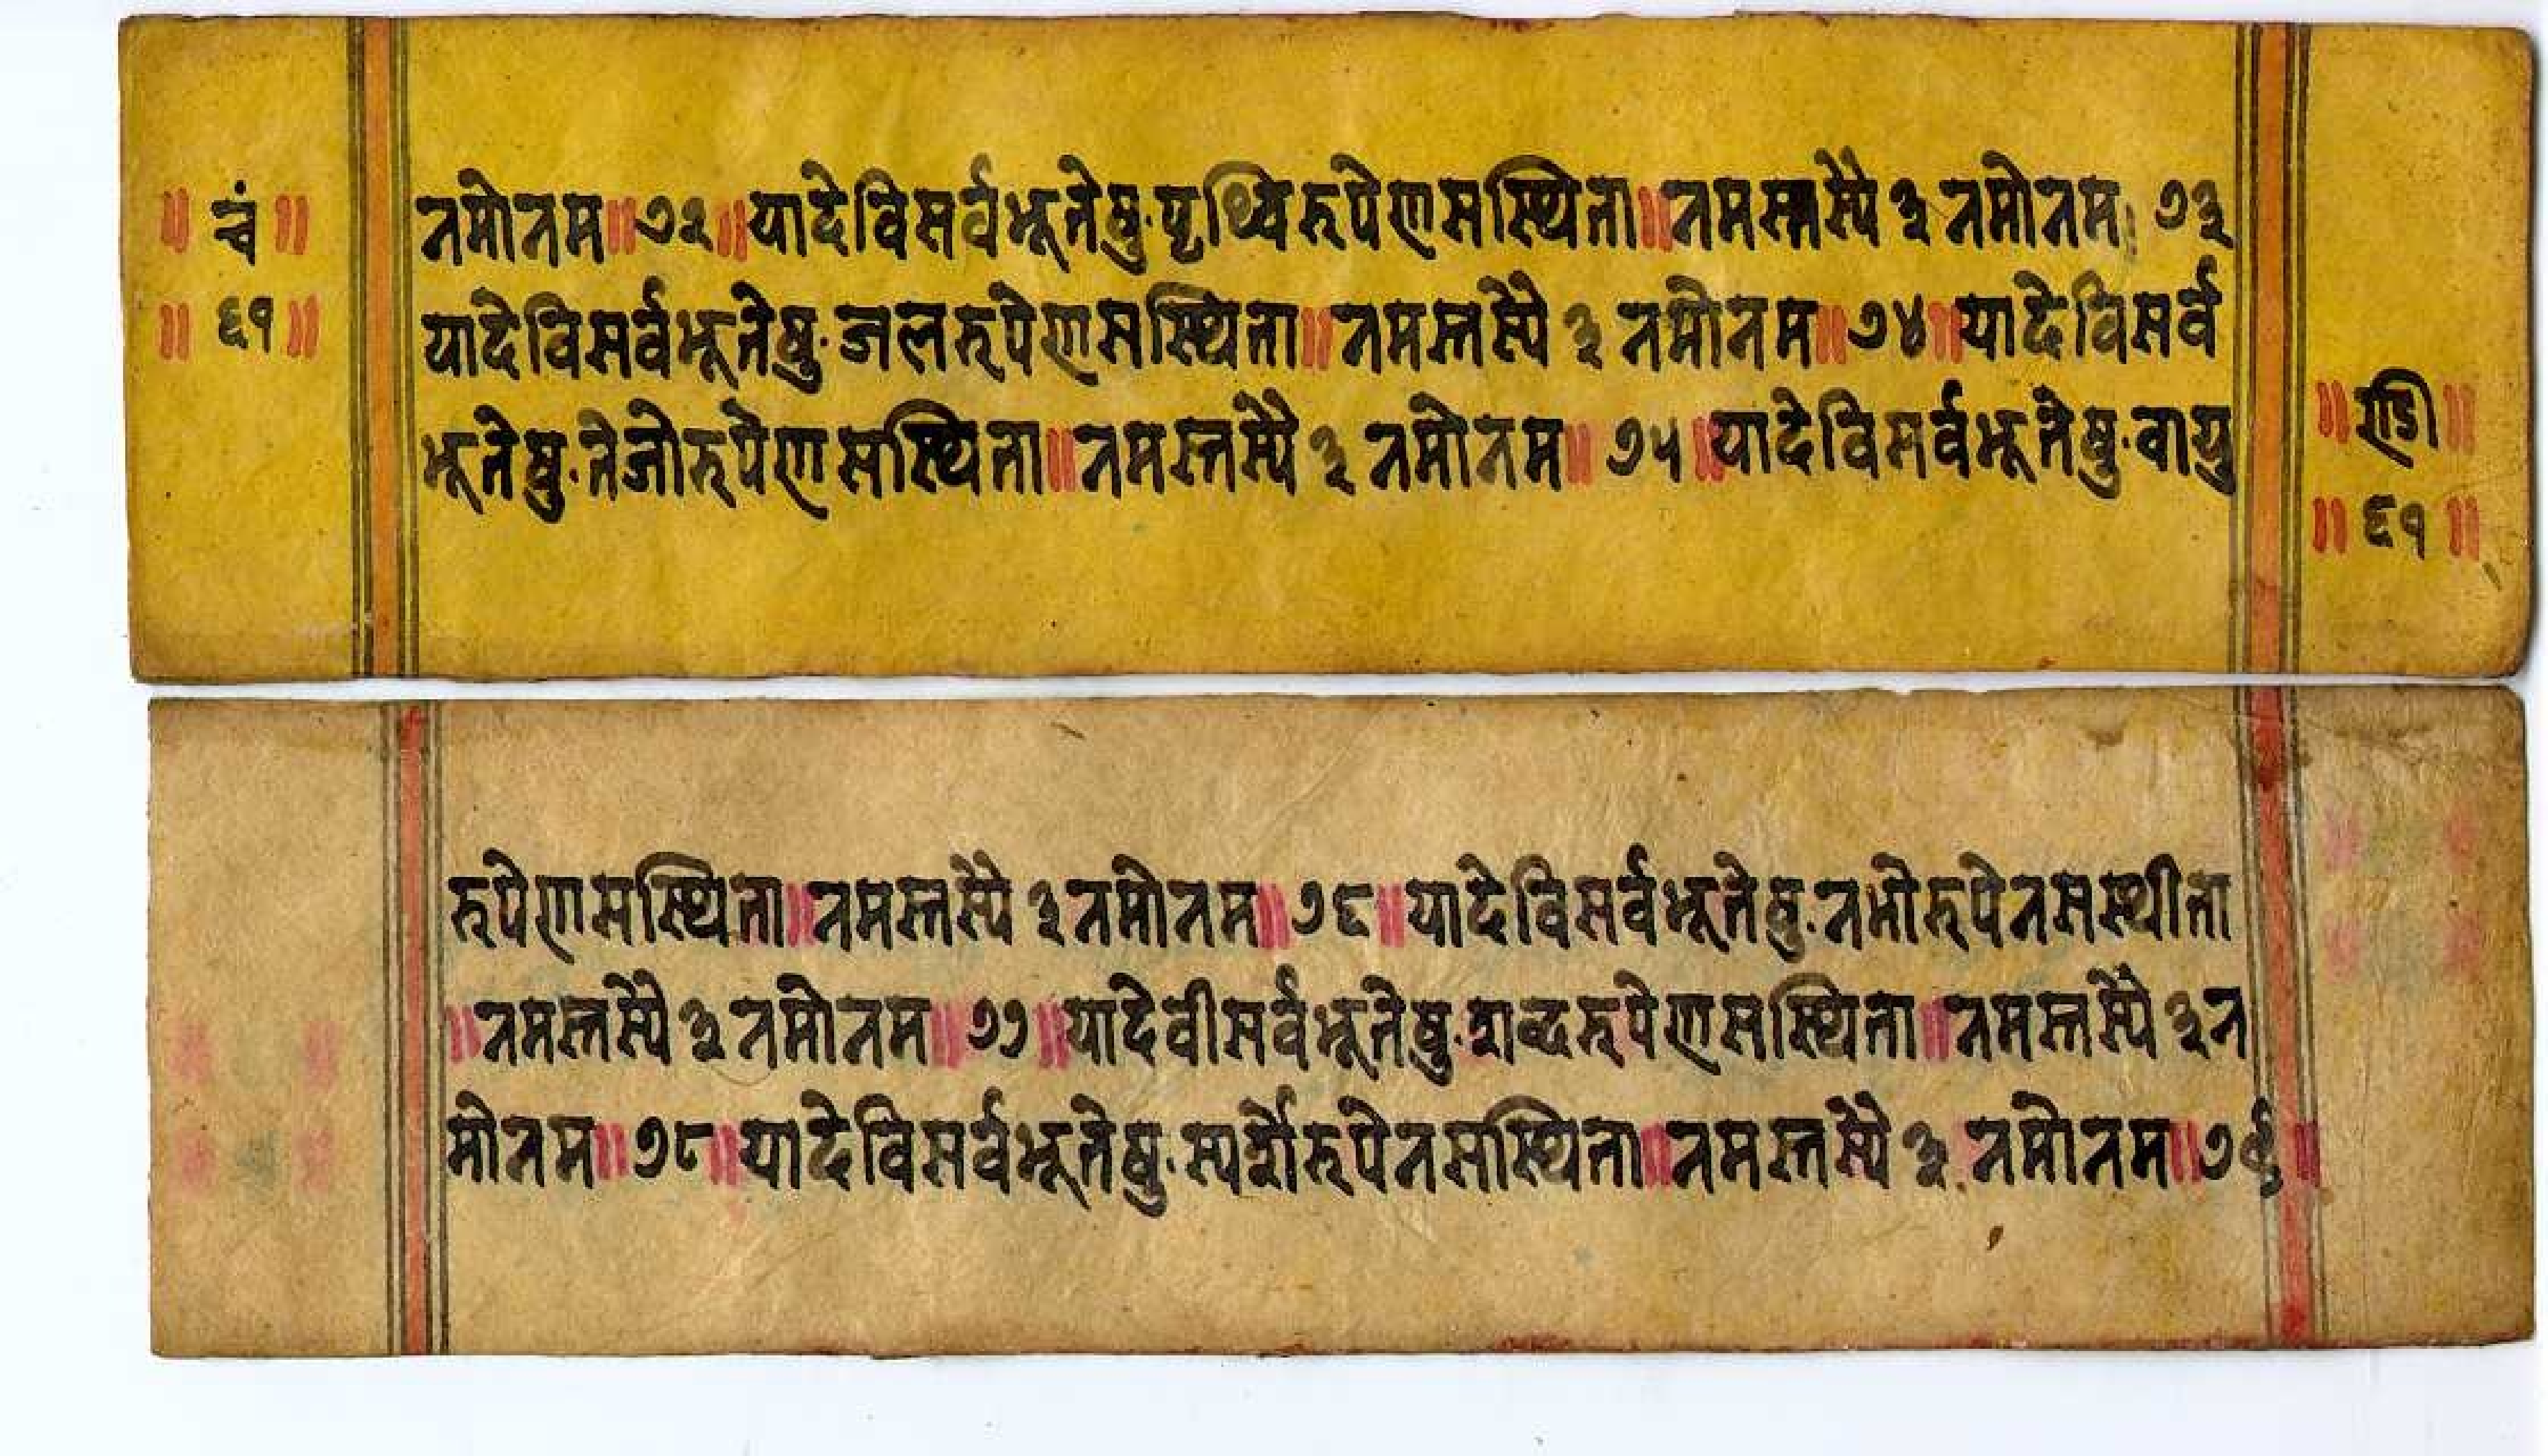 ॥ चं ॥
॥ ६१ ॥
नमोनम॥७२॥यादेविसर्वभूतेषु·पृथ्विरुपेणसस्थिता॥नमस्तस्यै ३ नमोनम। ७३
यादेविसर्वभूतेषु·जलरुपेणसस्थिता॥नमस्तस्यै ३ नमोनम॥७४॥यादेविसर्व
भूतेषु·तेजोरुपेणसस्थिता॥नमस्तस्यै ३ नमोनम॥ ७५॥यादेविसर्वभूतेषु·वायु
॥ण्डी॥
॥ ६१ ॥
रुपेणसस्थिता॥नमस्तस्यै ३ नमोनम॥७६॥यादेविसर्वभूतेषु·नभोरुपेनसस्थीता
॥नमस्तस्यै ३ नमोनम॥७७॥यादेवीसर्वभूतेषु·शब्दरुपेणसस्थिता॥नमस्तस्यै ३न
मोनम॥७८॥यादेविसर्वभूतेषु·स्पर्शोरुपेनसस्थिता॥नमस्तस्यै ३ नमोनम॥७९॥